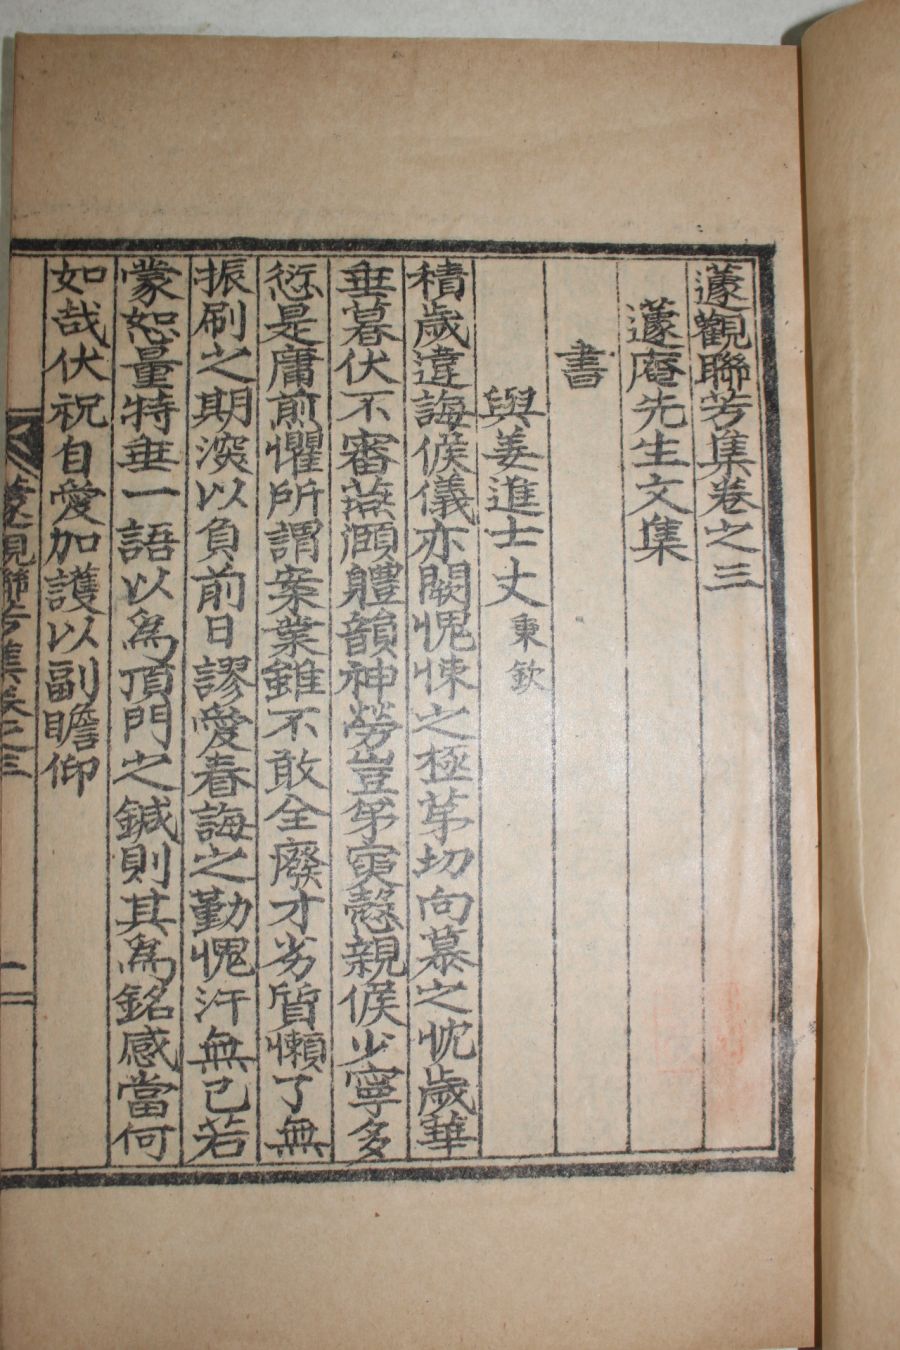 蘧觀聯芳集卷之三
蘧庵先生文集
書
與姜進士丈秉欽
積歲違誨候儀亦闕愧悚之極苐切向慕之忱歲華
垂暮伏不審燕頤軆韻神勞豈苐寅慤親候少寧多
愆是庸煎懼所謂案業雖不敢全廢才劣質懶了無
振刷之期深以負前日謬愛眷誨之勤愧汗無已若
蒙恕量特垂一語以爲頂門之鍼則其爲銘感當何
如哉伏祝自愛加護以副瞻仰
蘧觀聯芳集卷之三
一